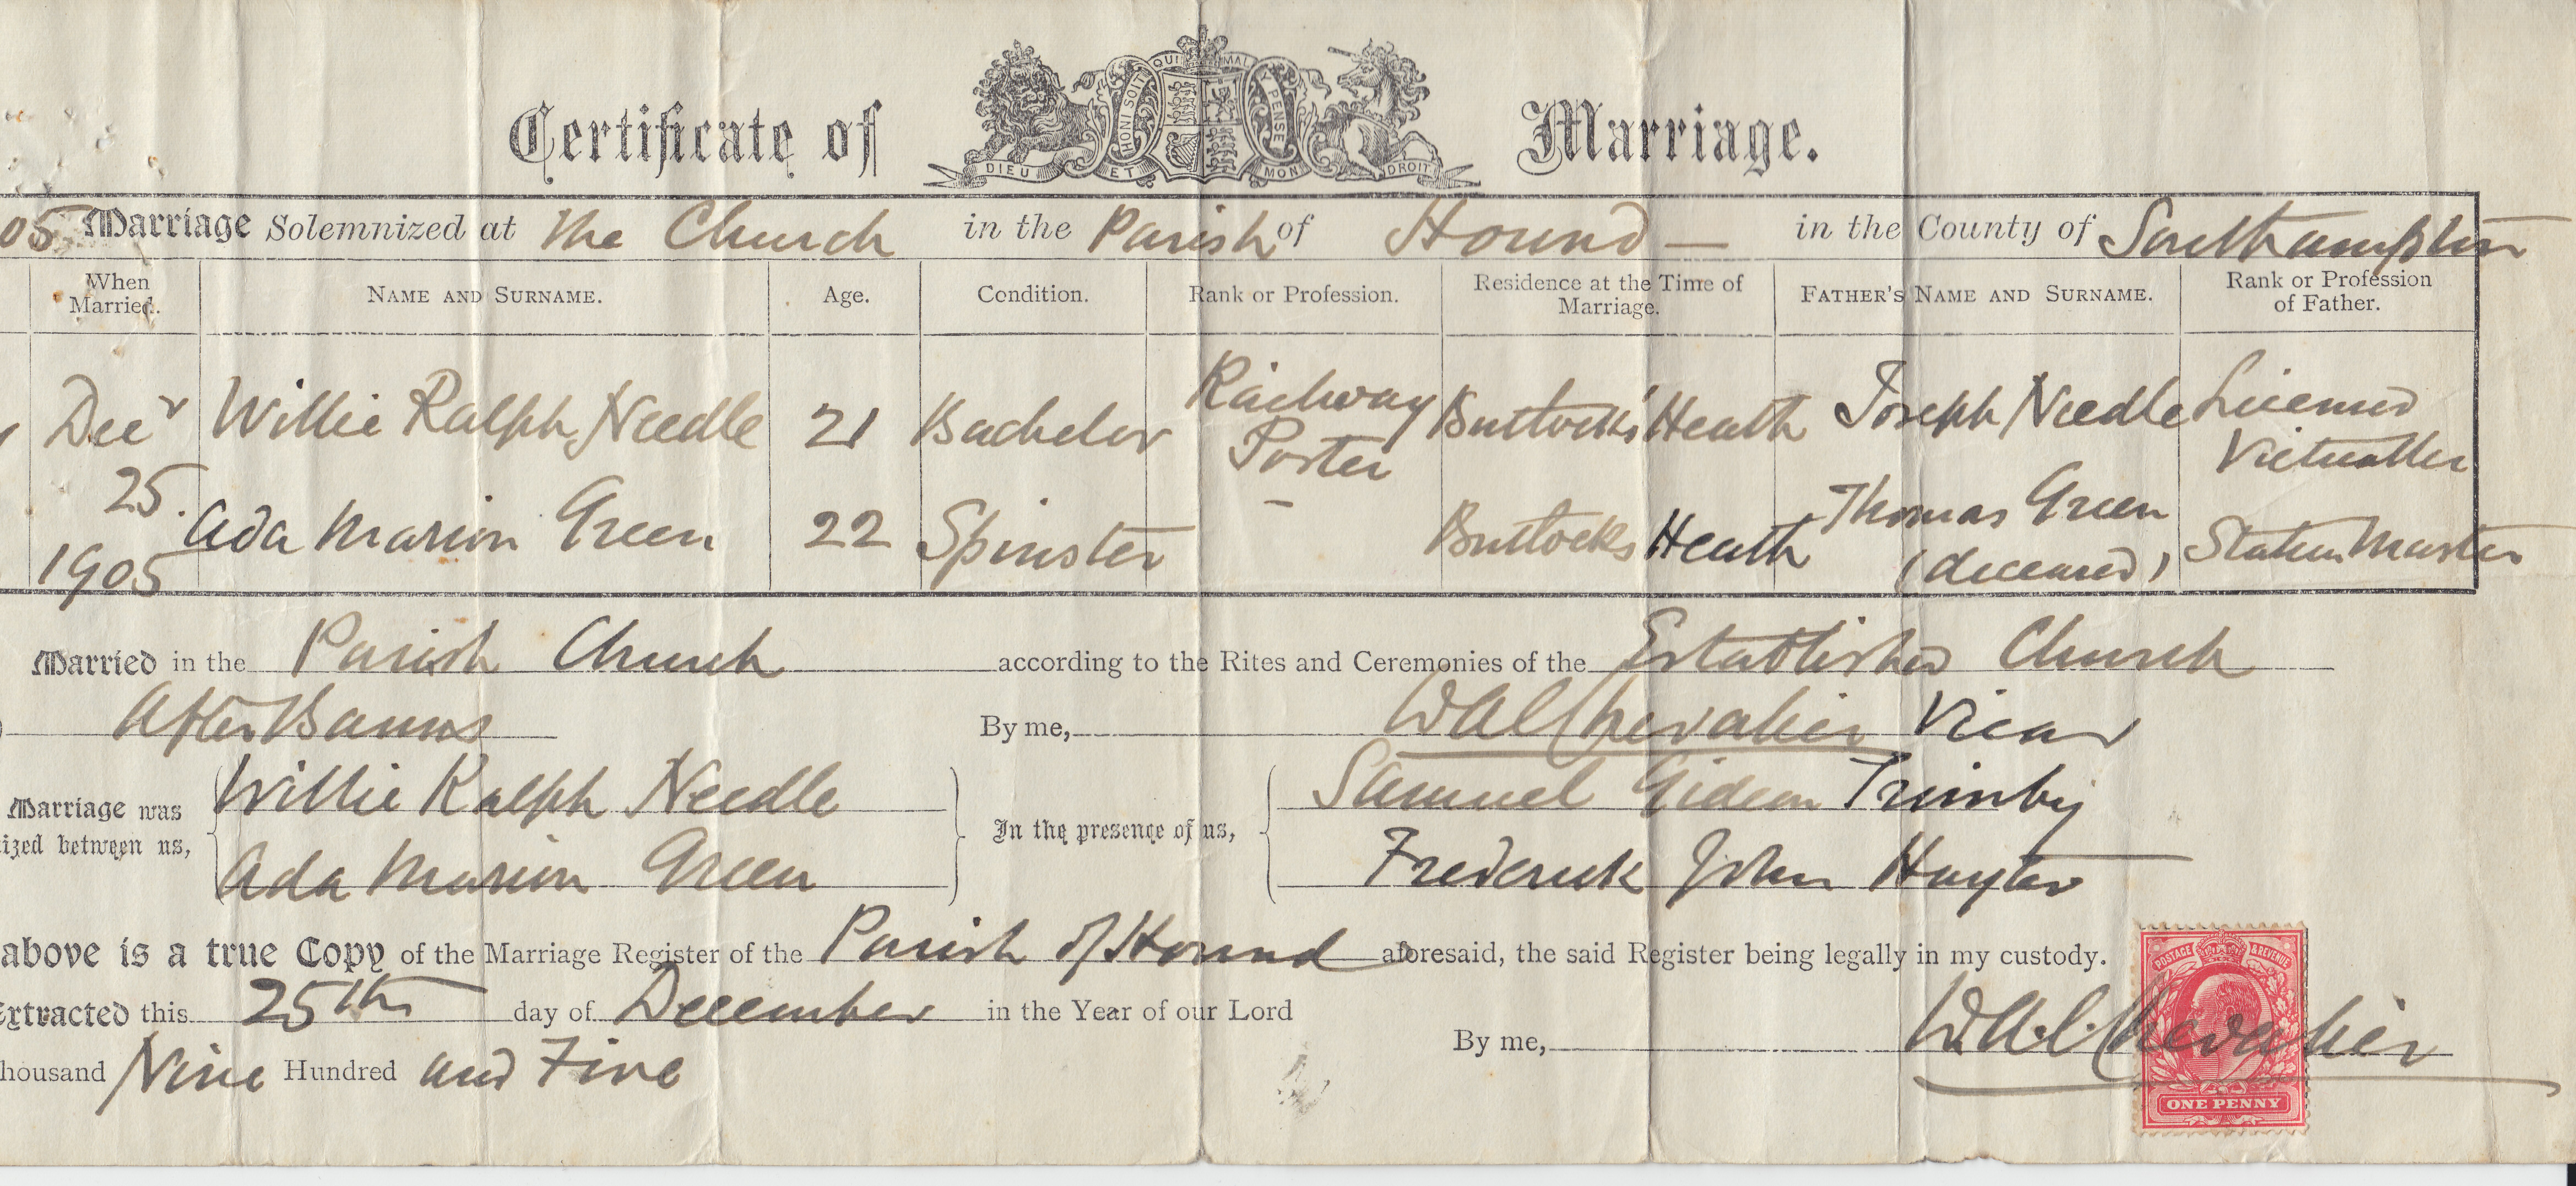 Certificate of Marriage.
HONI SOIT QUI MAL Y PENSE
DIEU ET MON DROIT
05 Marriage Solemnized at The Church in the Parish of Hound — in the County of Southampton
When Married. NAME AND SURNAME. Age. Condition. Rank or Profession. Residence at the Time of Marriage. FATHER'S NAME AND SURNAME. Rank or Profession of Father.
Decr 25. 1905
Willie Ralph Needle 21 Bachelor Railway Porter Bustocks' Heath Joseph Needle Licensed Victualler
Ada Marion Green 22 Spinster – Bustocks Heath Thomas Green (deceased) Station Master
Married in the Parish Church according to the Rites and Ceremonies of the Established Church
After Banns By me, W A L Chevalier Vicar
Marriage was
ized between us,
Willie Ralph Needle
Ada Marion Green
In the presence of us,
Samuel Gideon Trimby
Frederick John Hayter
above is a true Copy of the Marriage Register of the Parish of Hound aforesaid, the said Register being legally in my custody.
Extracted this 25th day of December in the Year of our Lord
housand Nine Hundred and Five
By me, W.A.L. Chevalier
POSTAGE & REVENUE
ONE PENNY